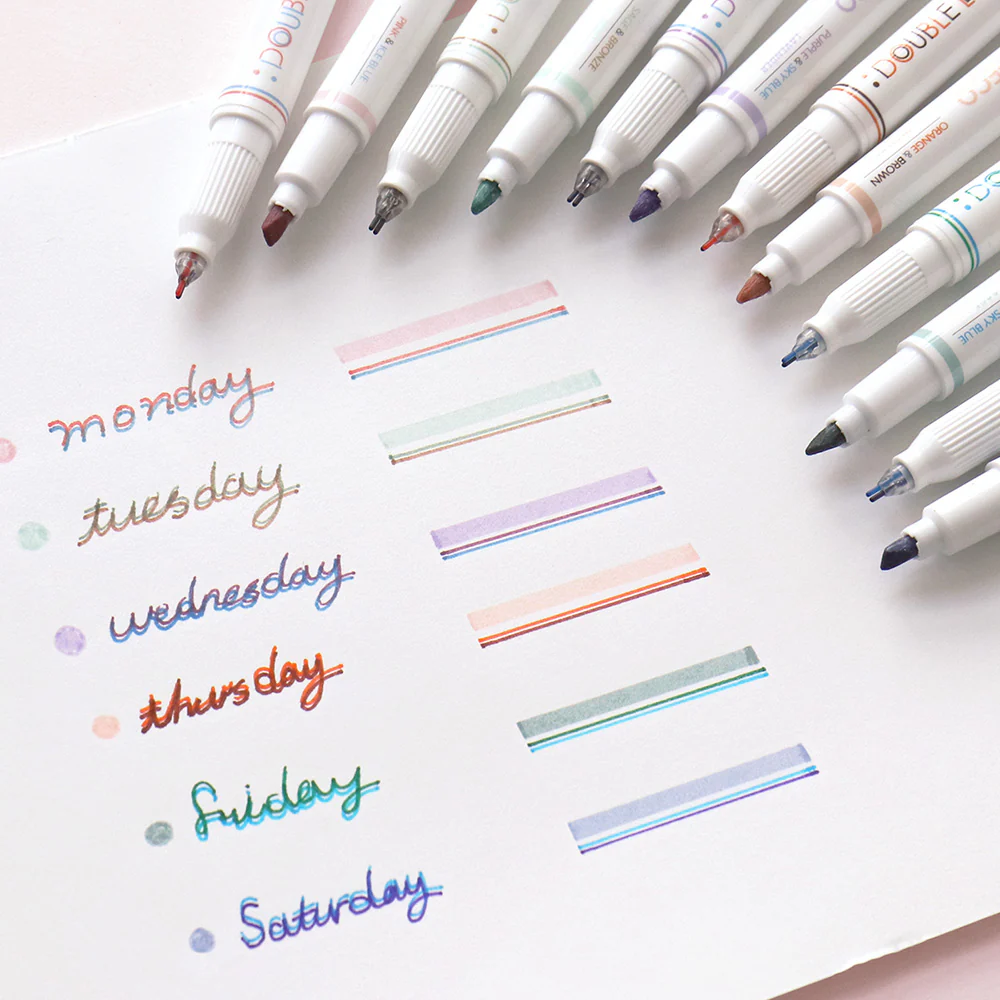 : DOUB
PINK & ICE BLUE
SAGE & BRONZE
PURPLE & SKY BLUE
LAVENDER
: DOUBLE
ORANGE & BROWN
SKY BLUE
monday
tuesday
wednesday
thursday
friday
Saturday